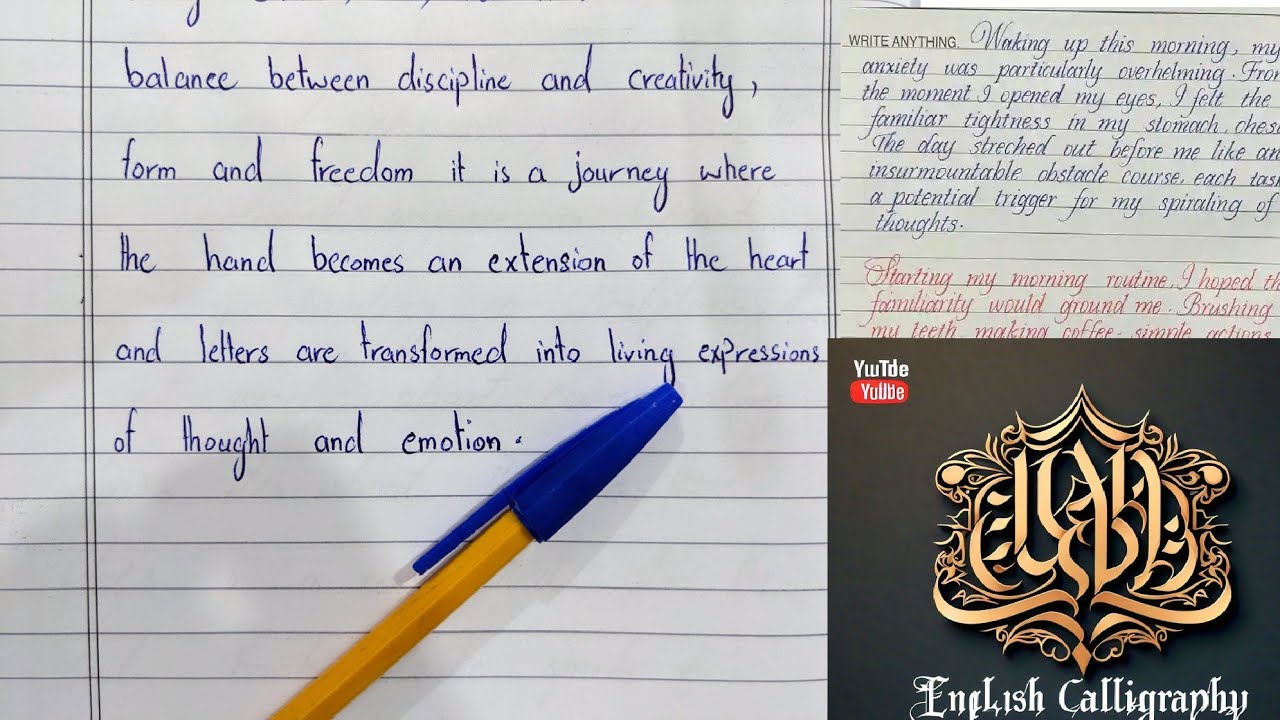 balance between discipline and creativity,
form and freedom it is a journey where
the hand becomes an extension of the heart
and letters are transformed into living expressions
of thought and emotion.
WRITE ANYTHING. Waking up this morning, my
anxiety was particularly overhelming. From
the moment I opened my eyes, I felt the
familiar tightness in my stomach, ches
The day streched out before me like an
insurmountable obstacle course, each task
a potential trigger for my spiraling of
thoughts.
Starting my morning routine, I hoped th
familiarity would ground me. Brushing
my teeth, making coffee, simple actions
YuTDe
YuUbe
English Calligraphy